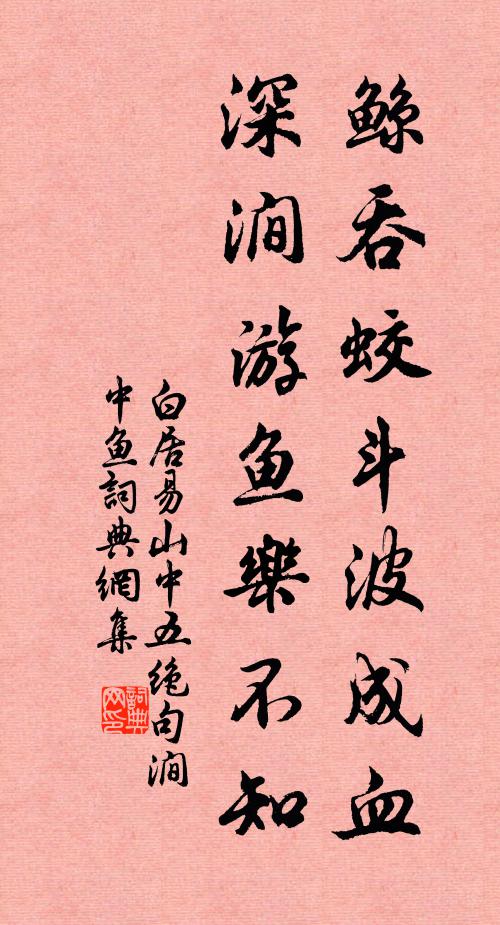 鲸吞蛟斗波成血
深涧游鱼樂不知
白居易山中五绝句涧
中鱼詞典網集
詞典网印